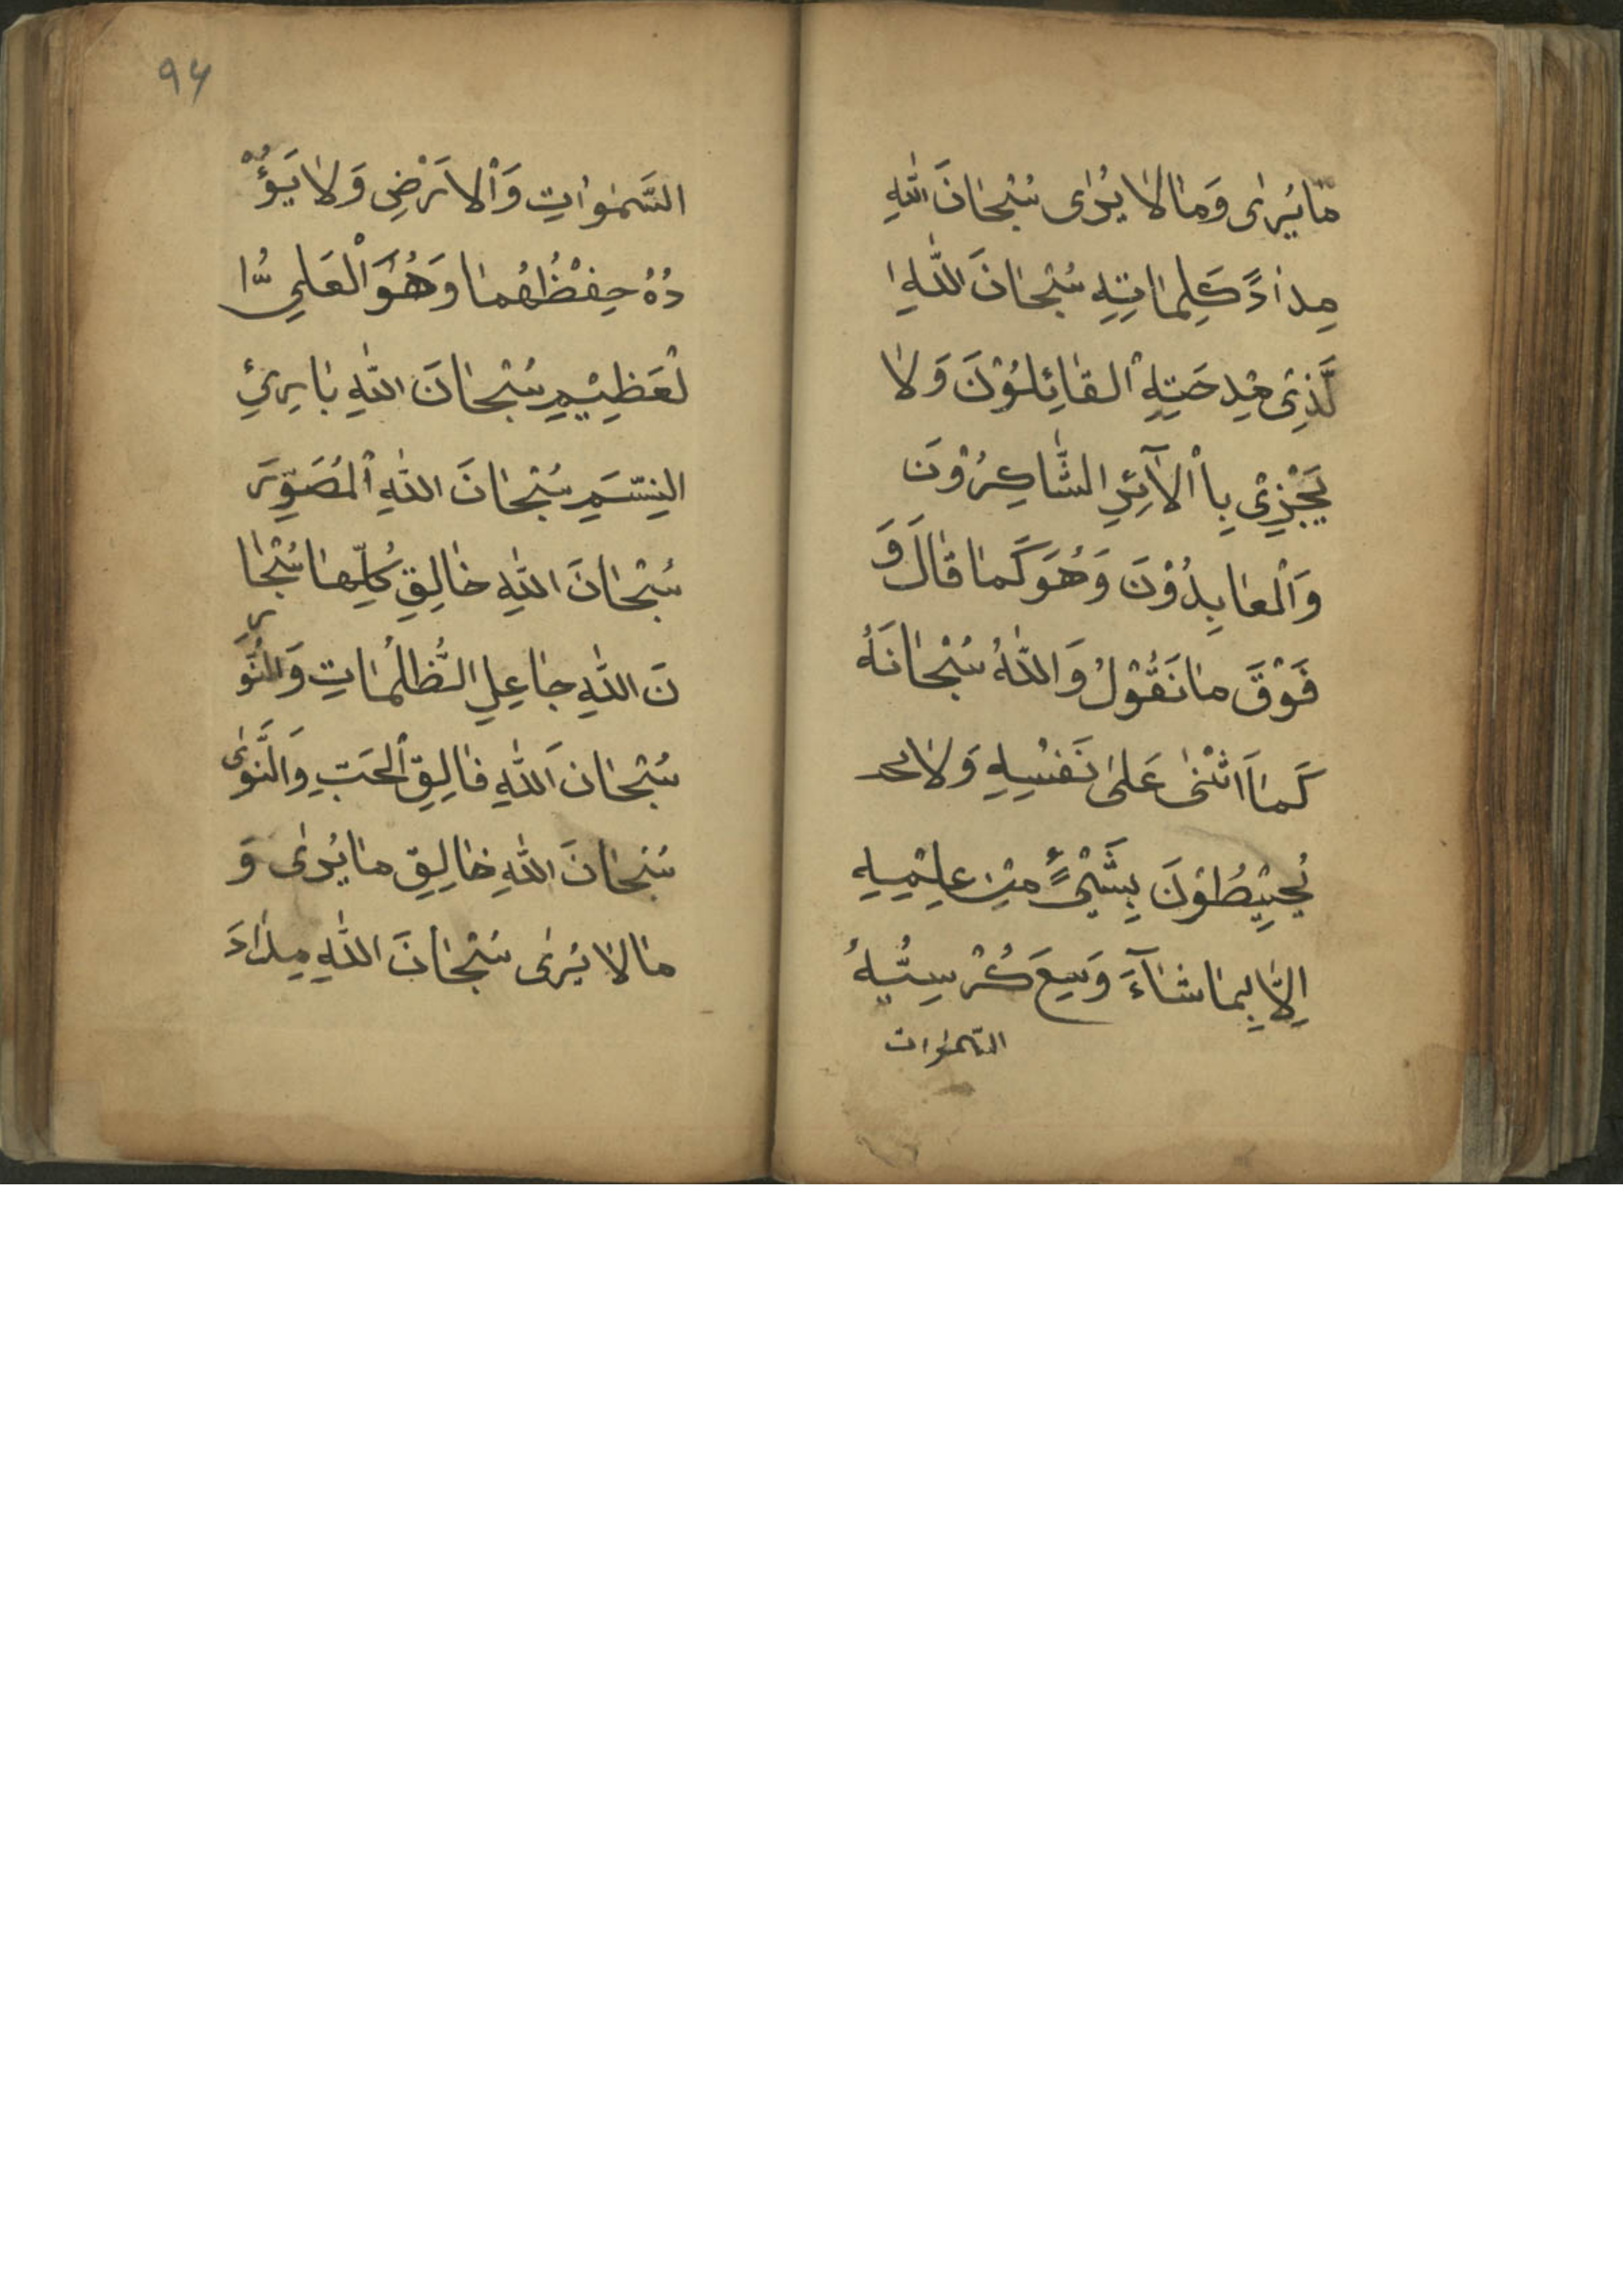 مٰا يُرىٰ وَمٰا لٰا يُرٰى سُبْحٰانَ اللّٰهِ
مِدٰادَ كَلِمٰاتِهِ سُبْحٰانَ اللّٰهِ ا
لَّذِىْ مِدحَتِهِ الْقٰائِلُوْنَ وَلٰا
يَجْزِىْ بِاْ الٰآئِهِ الشّٰاكِرُوْنَ
وَالْعٰابِدُوْنَ وَهُوَ كَمٰا قٰالَ وَ
فَوْقَ مٰا نَقُوْلُ وَاللّٰهُ سُبْحٰانَهُ
كَمٰا اَثْنىٰ عَلىٰ نَفْسِهِ وَلٰا
يُحيٖطُوْنَ بِشَيْءٍ مِنْ عِلْمِهِ
اِلّٰا بِمٰا شٰآءَ وَسِعَ كُرْسِيُّهُ
السّمٰوات
۹۴
السَّمٰوٰاتِ وَالْاَرْضِ وَلٰا يَؤُ
دُهُ حِفْظُهُمٰا وَهُوَ الْعَلِىُّ ا
لْعَظِيْمِ سُبْحٰانَ اللّٰهِ بٰارِئِ
النِسَّمِ سُبْحٰانَ اللّٰهِ الْمُصَوِّرَ
سُبْحٰانَ اللّٰهِ خٰالِقِ كُلِّهٰا سُبْحٰا
نَ اللّٰهِ جٰاعِلِ الظُّلُمٰاتِ وَالنُّوَرِ
سُبْحٰانَ اللّٰهِ فٰالِقِ الْحَبِّ وَالنَّوىٰ
سُبْحٰانَ اللّٰهِ خٰالِقِ مٰا يُرىٰ وَ
مٰا لٰا يُرىٰ سُبْحٰانَ اللّٰهِ مِدٰادَ